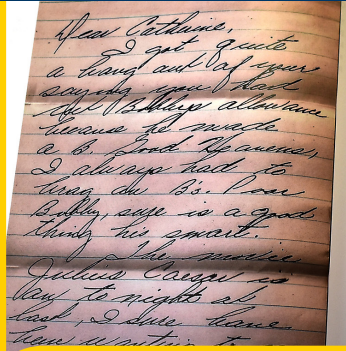 Dear Catherine,
I got quite
a bang out of your
saying you had
cut Bobbys allowance
because he made
a B. Good Heavens,
I always had to
brag on B's. Poor
Bobby, sure is a good
thing his smart.
The movie
Julius Caesar is
on to night at
last, I sure have
been wanting to